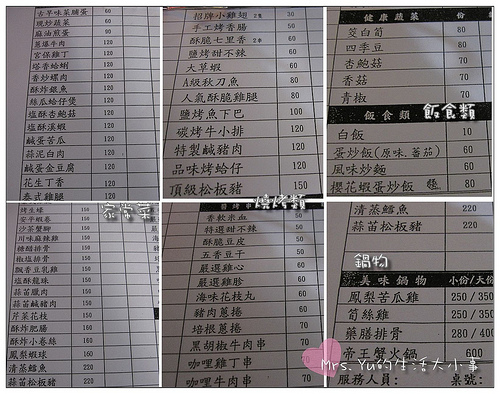 古早味菜脯蛋 60
現炒蔬菜 60
麻油煎蛋 60
蔥爆牛肉 120
宮保雞丁 120
塔香蛤蜊 120
香炒螺肉 120
酥炸銀魚 120
絲瓜蛤仔煲 120
塩酥杏鮑菇 120
塩酥溪蝦 120
鹹蛋苦瓜 120
蒜泥白肉 120
鹹蛋金豆腐 120
花生丁香 120
泰式雞腿
家常菜
招牌小雞翅 2隻 30
手工烤香腸 50
酥脆七里香 2串 60
鹽烤甜不辣 60
大草蝦 60
A級秋刀魚 80
人氣酥脆雞腿 80
鹽烤魚下巴 100
碳烤牛小排 120
特製鹹豬肉 120
品味烤蛤仔 120
頂級松板豬 150
燒烤類
健康蔬菜 份
茭白筍 80
四季豆 80
杏鮑菇 70
香菇 70
青椒 70
飯食類 飯食類
白飯 10
蛋炒飯(原味.蕃茄) 60
風味炒麵 60
櫻花蝦蛋炒飯 80
烤生蠔 150
安平蝦卷 150
沙茶蟹腳 150
川味麻辣雞 150
糖醋排骨 150
椒塩排骨 150
飄香豆乳雞 150
塩酥龍珠 150
蒜苗臘肉 150
蒜苗鹹豬肉 150
芹菜花枝 150
酥炸肥腸 160
酥炸小卷絲 160
鳳梨蝦球 160
清蒸鱈魚 220
蒜苗松板豬 220
香軟米血 50
特選甜不辣 50
酥脆豆皮 50
五香豆干 50
嚴選雞心 50
嚴選雞胗 50
海味花枝丸 60
豬肉蔥捲 60
培根蔥捲 70
黑胡椒牛肉串 70
咖哩雞丁串 70
咖哩牛肉串 70
清蒸鱈魚 220
蒜苗松板豬 220
鍋物
美味鍋物 小份/大份
鳳梨苦瓜雞 250/350
筍絲雞 250/350
藥膳排骨 280/400
帝王蟹火鍋 600
Mrs.Yu的生活大小事
服務人員: 桌號: